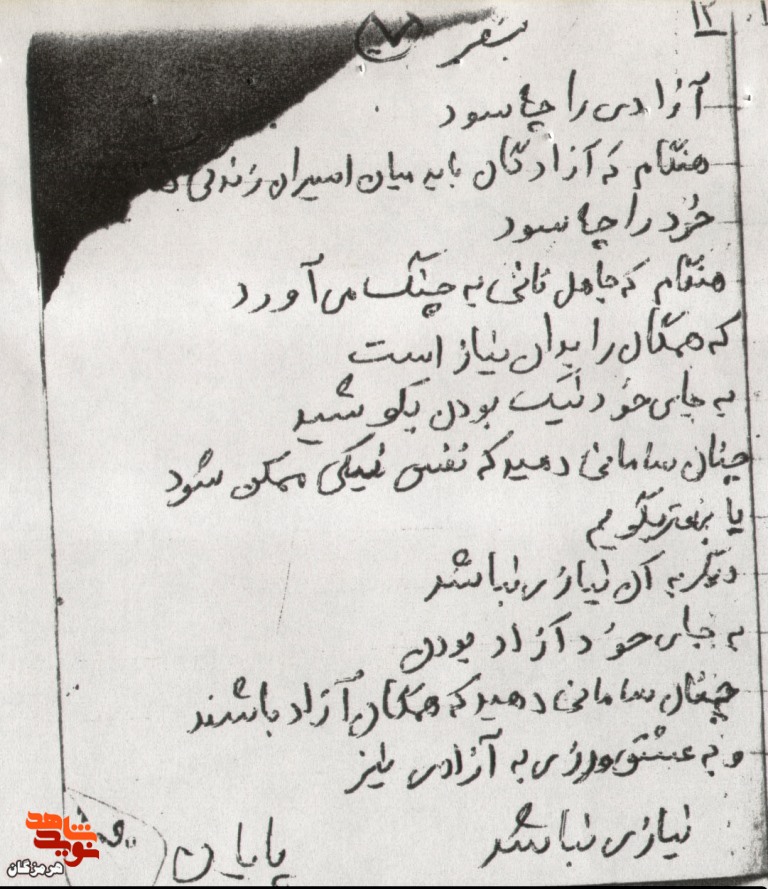 ۱۲
شعر ۷
آزادی را چه سود
هنگام که آزادگان باید میان اسیران زندگی
خرد را چه سود
هنگام که جاهل نانی به چنگ می آورد
که همگان را بدان نیاز است
به جای خود نیک بودن بکوشید
چنان سامانی دهید که نفس نیکی ممکن شود
یا بهتر بگویم
دیگر به آن نیازی نباشد
به جای خود آزاد بودن
چنان سامانی دهید که همگان آزاد باشند
و به عشق ورزی به آزادی نیز
نیازی نباشد
پایان
نوید شاهد
هرمزگان